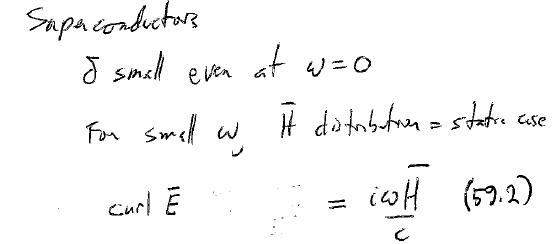 Superconductors
δ small even at ω=0
For small ω, H̄ distribution = static case
curl Ē = iωH̄/c (59.2)